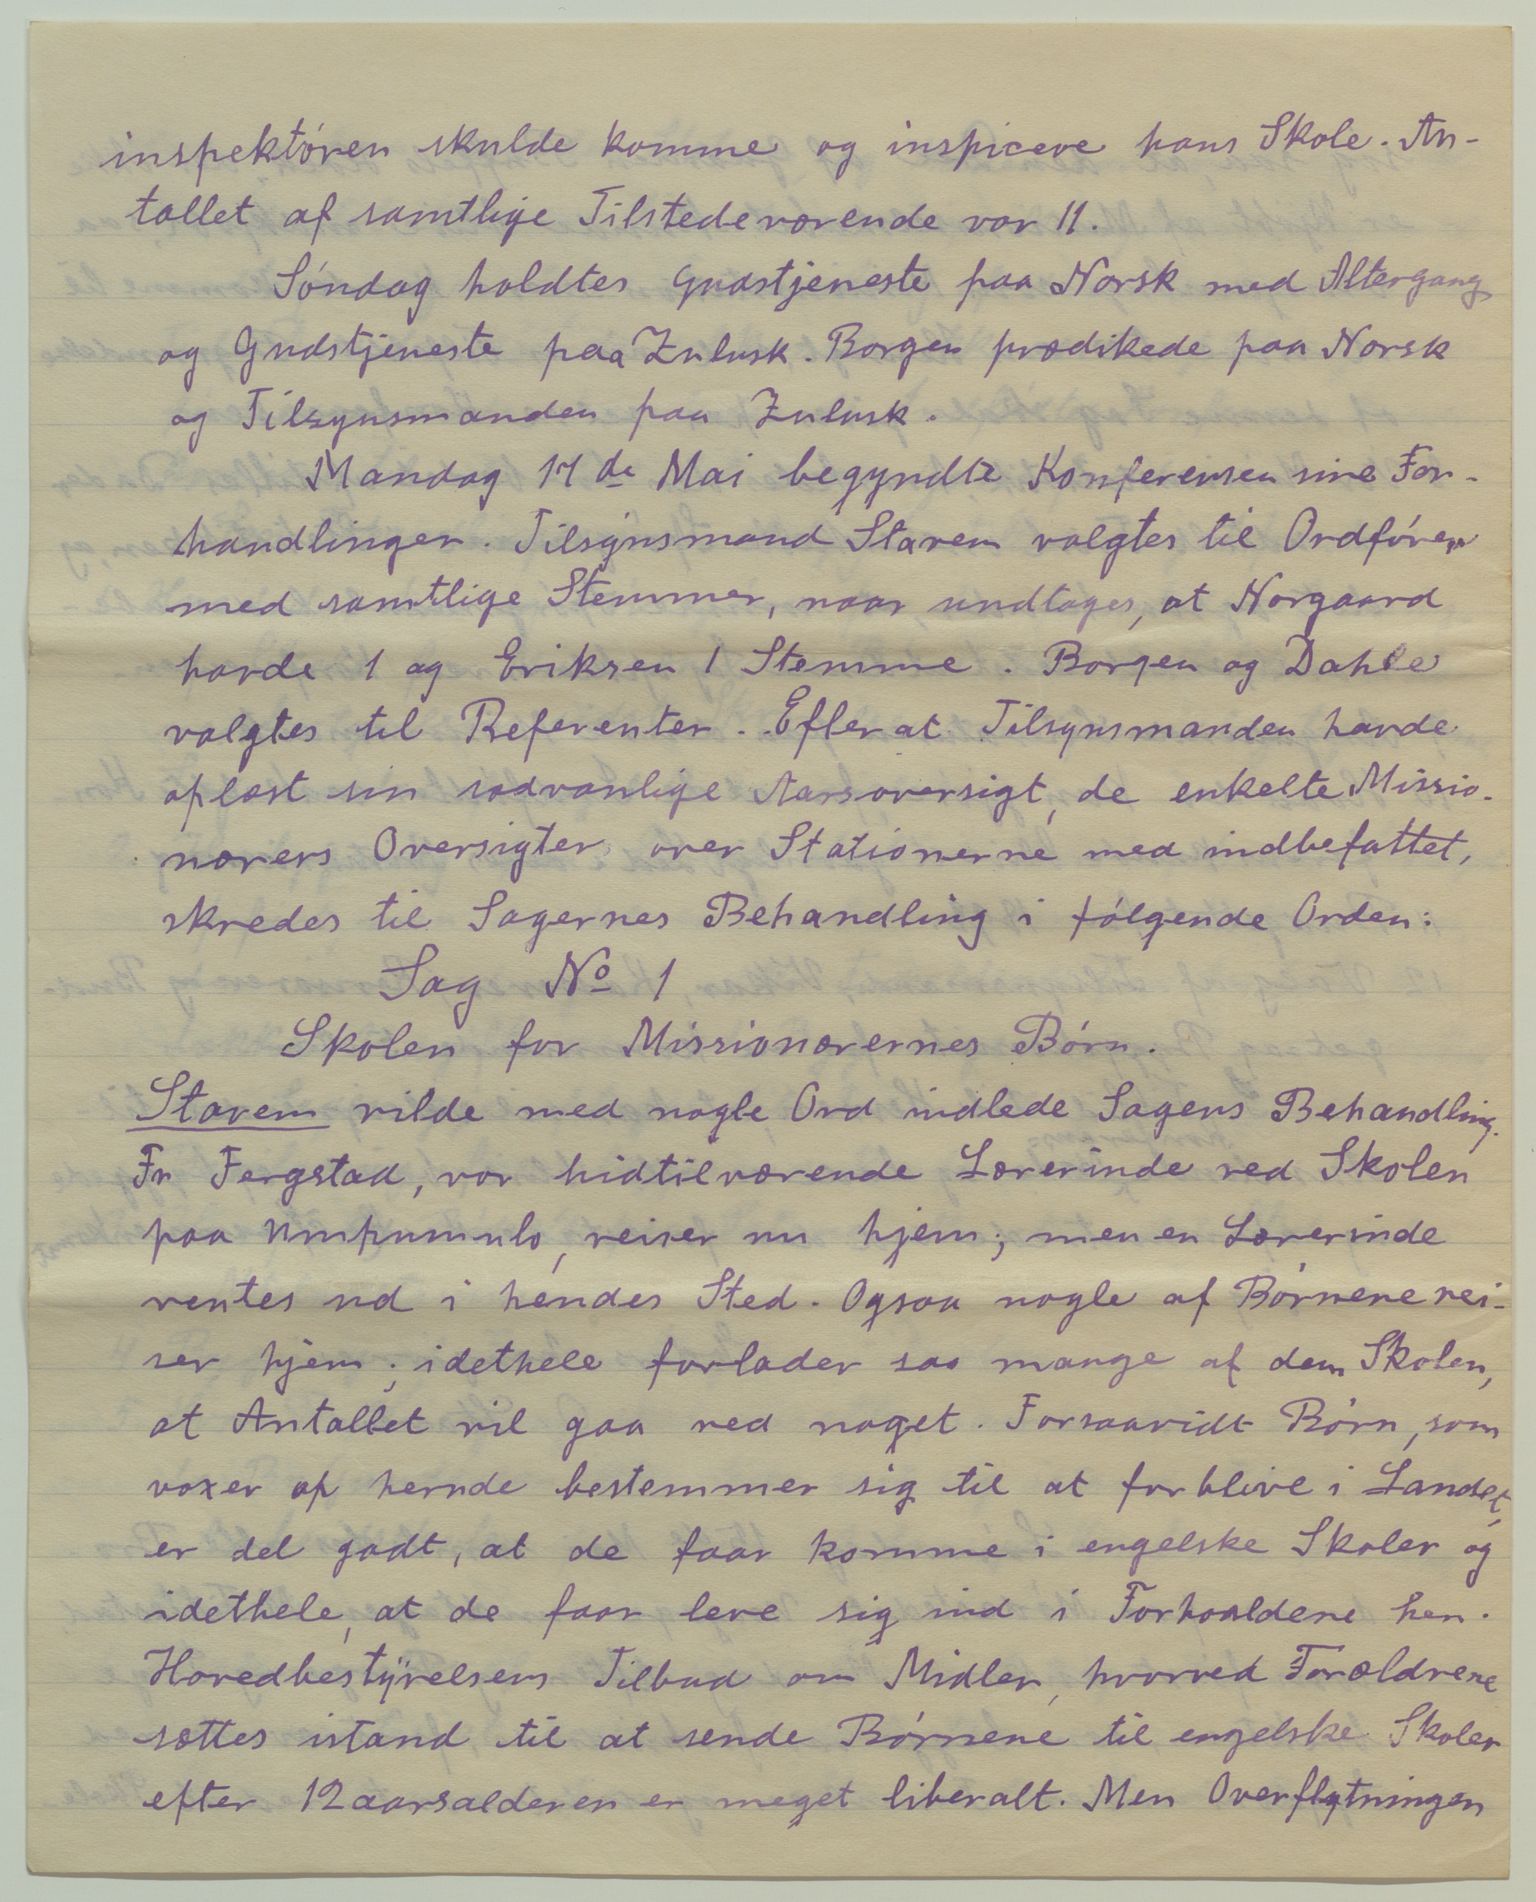 inspektören skulde komme og inspicere hans Skole. An-
tallet af samtlige Tilstedeværende var 11.
Söndag holdtes Gudstjeneste paa Norsk med Altergang
og Gudstjeneste paa Zulusk. Borgen prædikede paa Norsk
og Tilsynsmanden paa Zulusk.
Mandag 17 de Mai begyndte Konferensen sine For-
handlinger. Tilsynsmand Stavem valgtes til Ordförer
med samtlige Stemmer, naar undtages, at Norgaard
havde 1 og Eriksen 1 Stemme. Borgen og Dahle
valgtes til Referenter. Efterat Tilsynsmanden havde
oplæst sin sædvanlige Aarsoversigt, de enkelte Missio-
nærers Oversigter over Stationerne med indbefattet,
skredes til Sagernes Behandling i fölgende Orden:
Sag No 1
Skolen for Missionærernes Börn.
Stavem vilde med nogle Ord indlede Sagens Behandling.
Fr Fergstad, vor hidtilværende Lærerinde ved Skolen
paa Umpumulo, reiser nu hjem; men en Lærerinde
ventes ud i hendes Sted. Ogsaa nogle af Börnene rei-
ser hjem; idethele forlader saa mange af dem Skolen,
at Antallet vil gaa ned noget. Forsaavidt Börn, som
voxer op hernde bestemmer sig til at forblive i Landet,
er det godt, at de faar komme i engelske Skoler og
idethele, at de faar leve sig ind i Forhaaldene her.
Hovedbestyrelsens Tilbud om Midler, hvorved Forældrene
sættes istand til at sende Börnene til engelske Skoler
efter 12aarsalderen er meget liberalt. Men Overflytningen